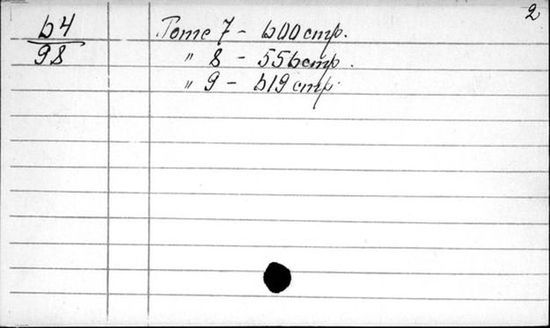 2
64
98
Tome 7 - 600 стр.
" 8 - 556 стр.
" 9 - 619 стр.